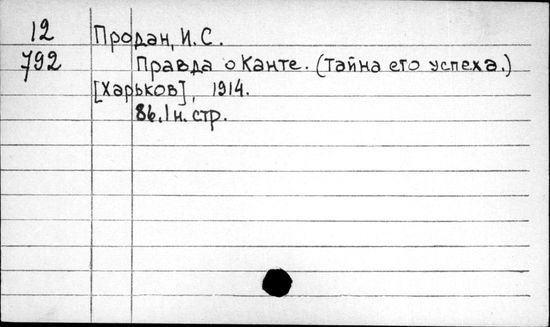 12 Продан, И.С.
792 Правда о Канте. (Тайна его успеха.)
[Харьков], 1914.
86.1 н. стр.